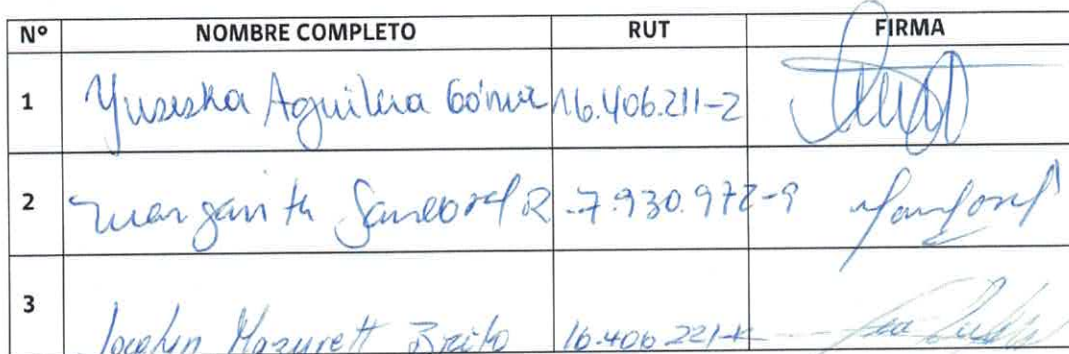 Nº NOMBRE COMPLETO RUT FIRMA
1 Yuseska Aguilera Gómez 16.406.211-2
2 Margarita Sandoval R 7.930.972-9
3 Jocelyn Mazurett Brito 16.406.221-K